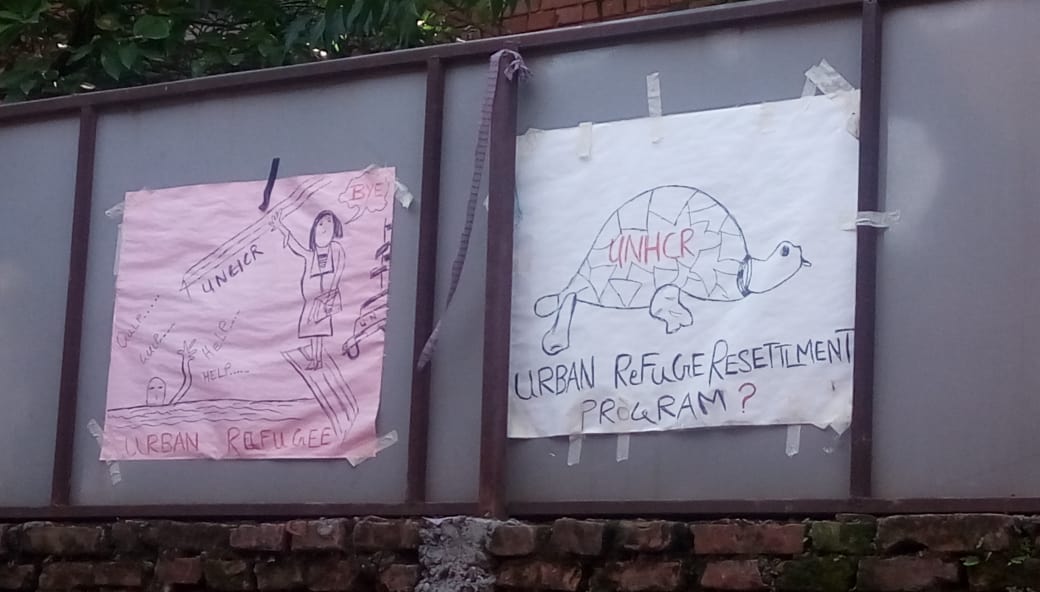 BYE
UNHCR
GULP.....
GULP....
HELP....
HELP.....
UN
URBAN REFUGEE
UNHCR
URBAN REFUGE RESETTLMENT
PROGRAM?